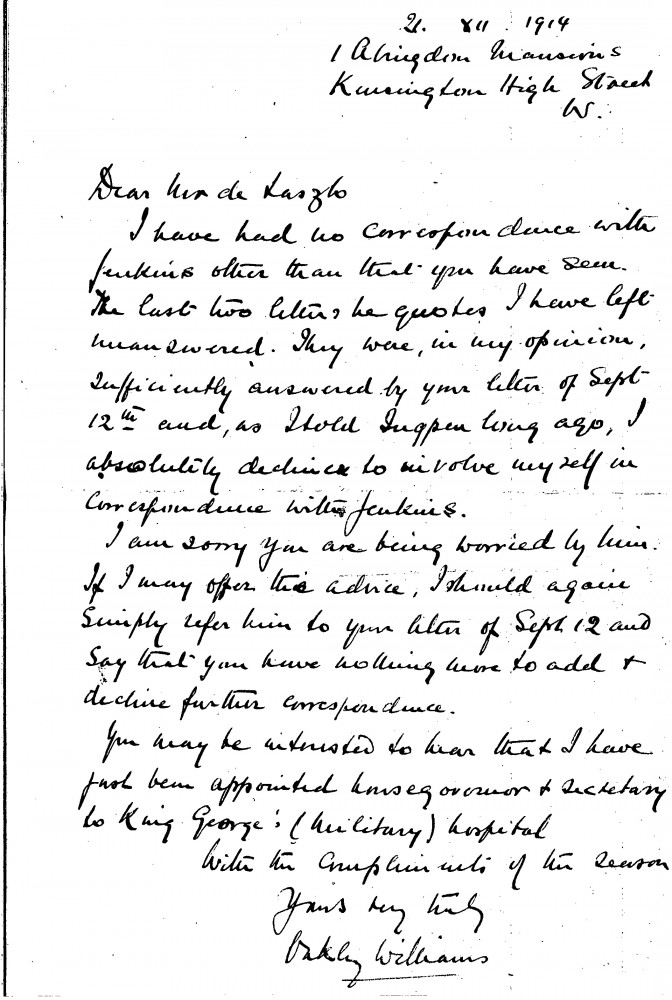 21. XII. 1914
1 Abingdon Mansions
Kensington High Street
W.
Dear Mr de Laszlo
I have had no correspondence with
Jenkins other than that you have seen.
The last two letters he quotes I have left
unanswered. They were, in my opinion,
sufficiently answered by your letter of Sept
12th and, as I told Ingpen long ago, I
absolutely decline to involve myself in
correspondence with Jenkins.
I am sorry you are being worried by him.
If I may offer the advice, I should again
simply refer him to your letter of Sept 12 and
say that you have nothing more to add &
decline further correspondence.
You may be interested to hear that I have
just been appointed house governor & secretary
to King George's (Military) hospital
With the compliments of the season
Yours very truly
Oakley Williams